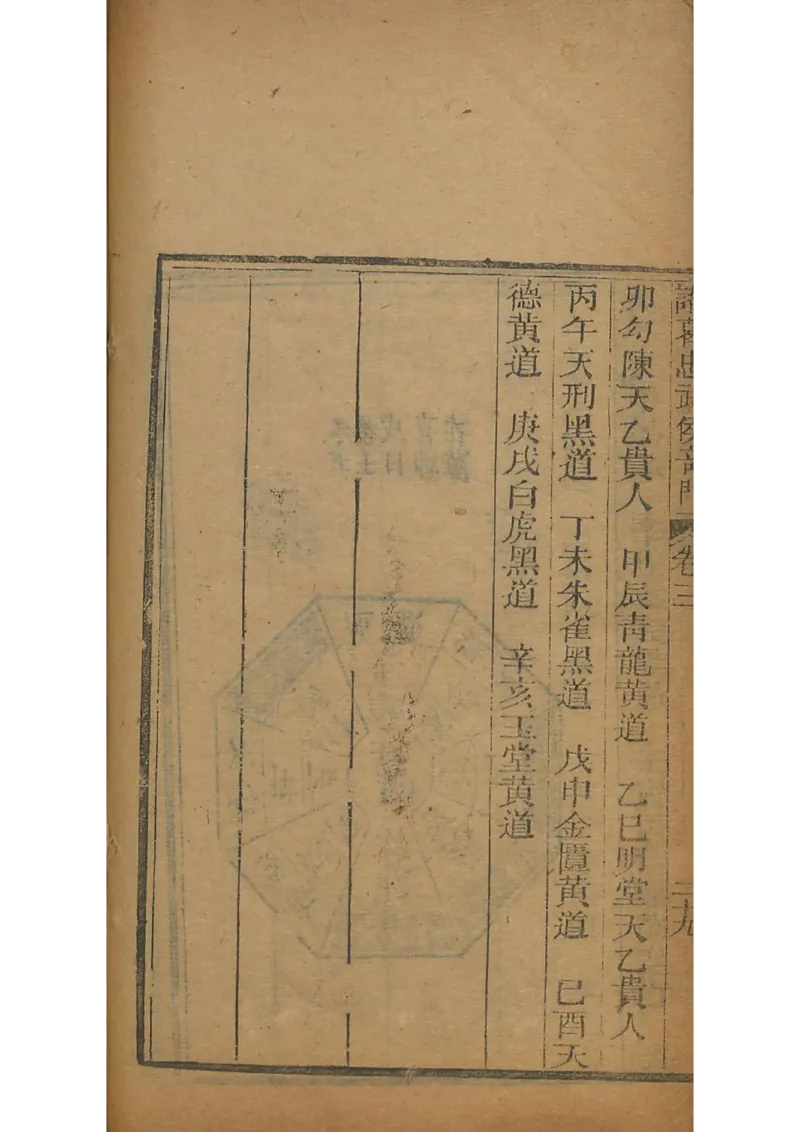 諸葛忠武侯奇門 卷三 二九
卯勾陳天乙貴人 甲辰青龍黃道 乙巳明堂天乙貴人
丙午天刑黑道 丁未朱雀黑道 戊申金匱黃道 已酉天
德黃道 庚戌白虎黑道 辛亥玉堂黃道